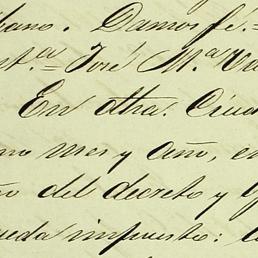 bano. Damos fé.=
nt.ª= José M.ª Va
En otra. Ciud
mo mes y año, en
no del decreto y q
ueda impuesto: l